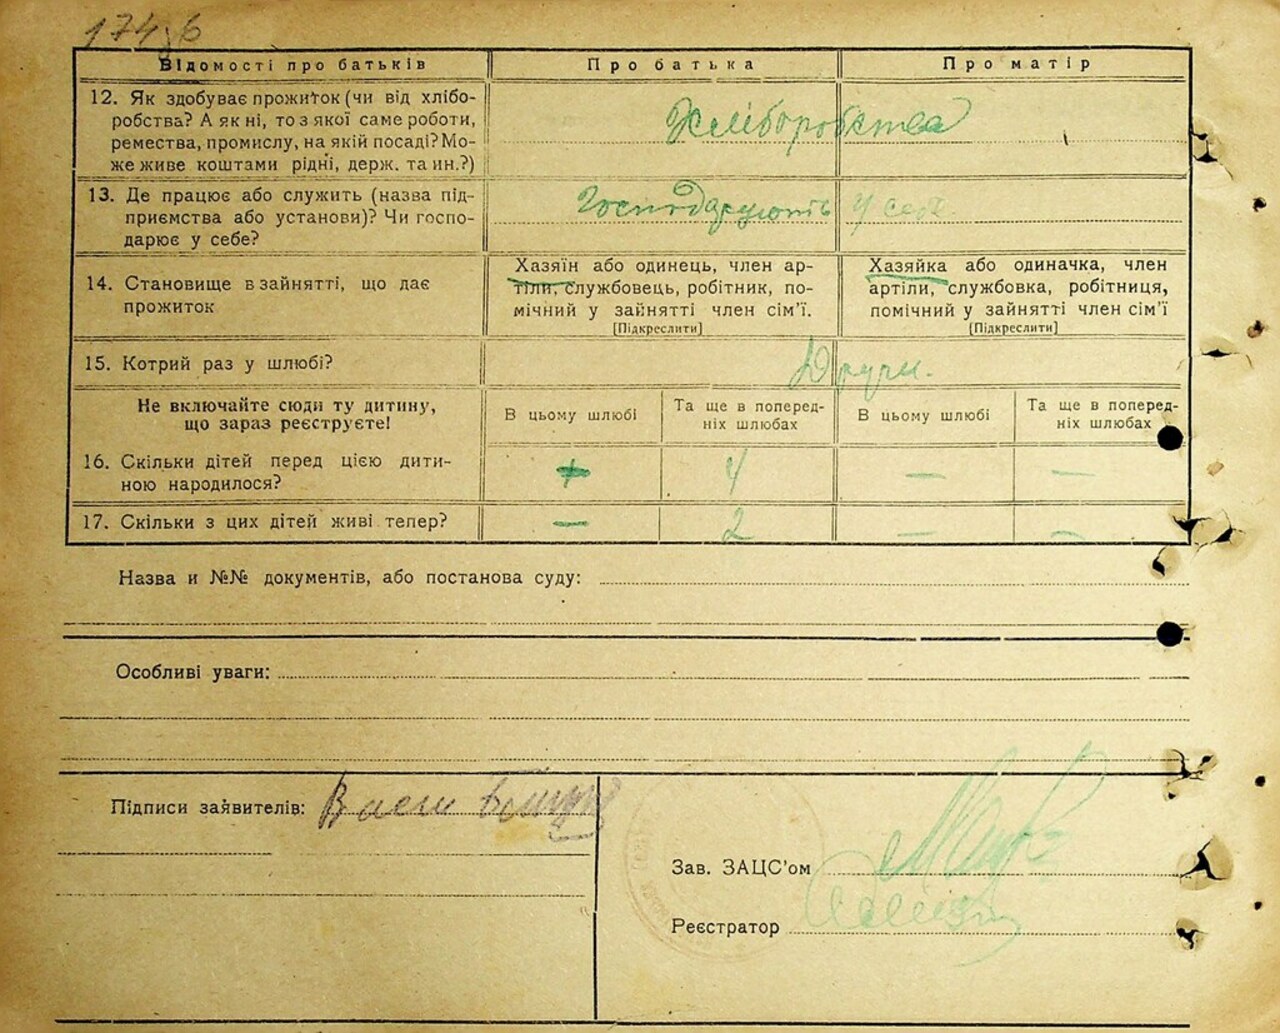 174зв
Відомості про батьків Про батька Про матір
12. Як здобуває прожиток (чи від хлібо-
робства? А як ні, то з якої саме роботи,
ремества, промислу, на якій посаді? Мо-
же живе коштами рідні, держ. та ин.?)
Хліборобства
13. Де працює або служить (назва під-
приємства або установи)? Чи госпо-
дарює у себе?
Господарують у себе
14. Становище в зайнятті, що дає
прожиток
Хазяїн або одинець, член ар-
тіли, службовець, робітник, по-
мічний у зайнятті член сім’ї.
[Підкреслити]
Хазяйка або одиначка, член
артіли, службовка, робітниця,
помічний у зайнятті член сім’ї
[Підкреслити]
15. Котрий раз у шлюбі?
Други.
Не включайте сюди ту дитину,
що зараз реєструєте!
В цьому шлюбі
Та ще в поперед-
ніх шлюбах
В цьому шлюбі
Та ще в поперед-
ніх шлюбах
16. Скільки дітей перед цією дити-
ною народилося?
+ 4 — —
17. Скільки з цих дітей живі тепер?
— 2 — —
Назва и №№ документів, або постанова суду:
Особливі уваги:
Підписи заявителів:
Зав. ЗАЦС’ом
Реєстратор